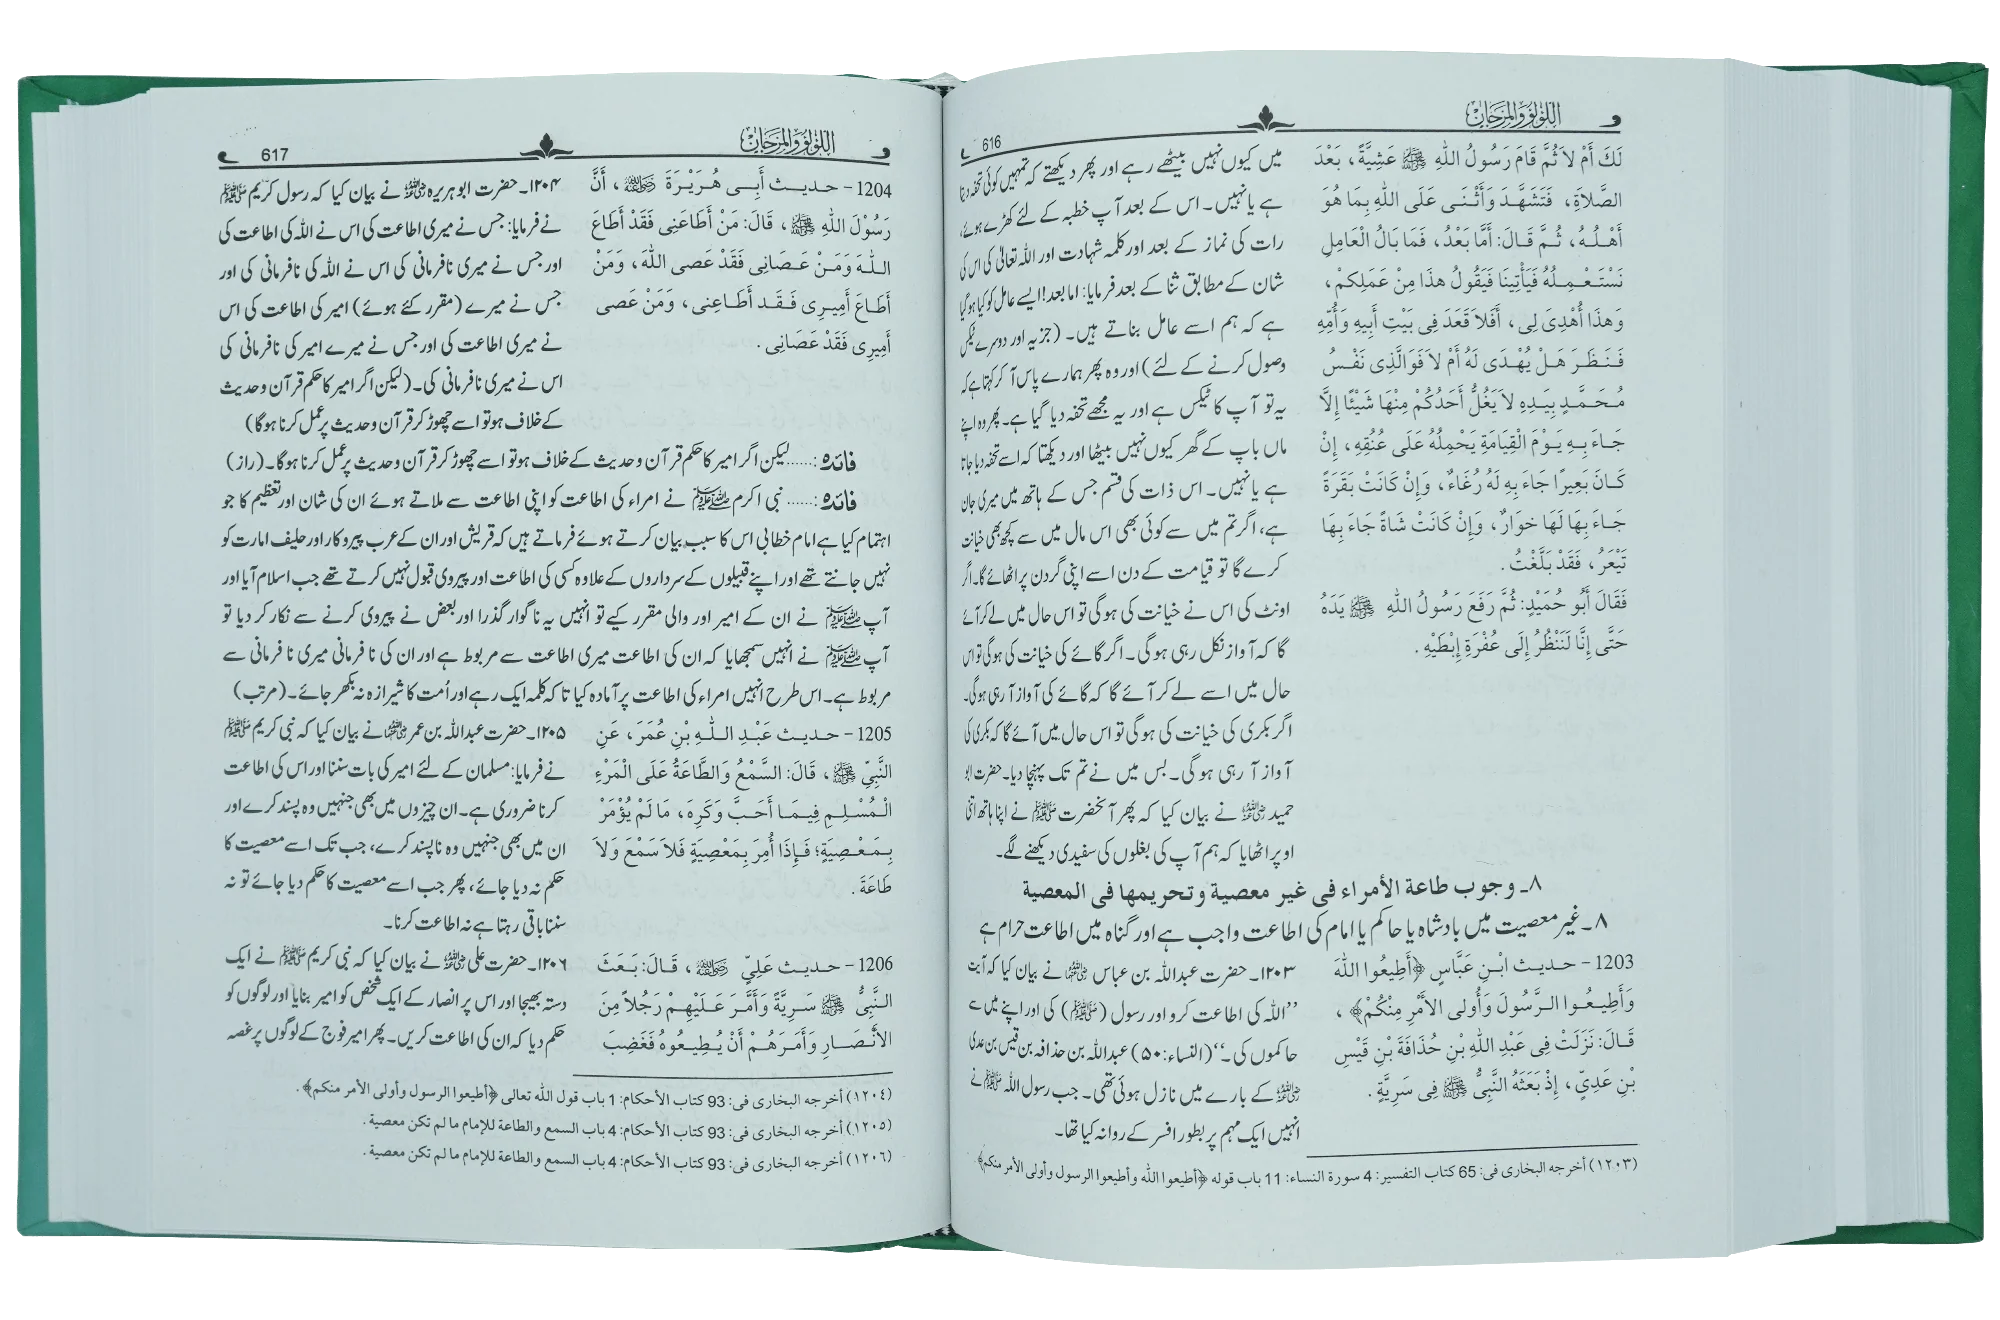 اللؤلؤ والمرجان
616
لَكَ أَمْ لاَ ثُمَّ قَامَ رَسُولُ اللهِ ﷺ عَشِيَّةً، بَعْدَ
الصَّلاَةِ، فَتَشَهَّدَ وَأَثْنَى عَلَى اللهِ بِمَا هُوَ
أَهْلُهُ، ثُمَّ قَالَ: أَمَّا بَعْدُ، فَمَا بَالُ الْعَامِلِ
نَسْتَعْمِلُهُ فَيَأْتِينَا فَيَقُولُ هذَا مِنْ عَمَلِكُمْ،
وَهذَا أُهْدِىَ لِى، أَفَلاَ قَعَدَ فِى بَيْتِ أَبِيهِ وَأُمِّهِ
فَنَظَرَ هَلْ يُهْدَى لَهُ أَمْ لاَ فَوَالَّذِى نَفْسُ
مُحَمَّدٍ بِيَدِهِ لاَ يَغُلُّ أَحَدُكُمْ مِنْهَا شَيْئًا إِلَّا
جَاءَ بِهِ يَوْمَ الْقِيَامَةِ يَحْمِلُهُ عَلَى عُنُقِهِ، إِنْ
كَانَ بَعِيرًا جَاءَ بِهِ لَهُ رُغَاءٌ، وَإِنْ كَانَتْ بَقَرَةً
جَاءَ بِهَا لَهَا خوَارٌ، وَإِنْ كَانَتْ شَاةً جَاءَ بِهَا
تَيْعَرُ، فَقَدْ بَلَّغْتُ.
فَقَالَ أَبُو حُمَيْدٍ: ثُمَّ رَفَعَ رَسُولُ اللهِ ﷺ يَدَهُ
حَتَّى إِنَّا لَنَنْظُرُ إِلَى عُفْرَةِ إِبْطَيْهِ.
میں کیوں نہیں بیٹھے رہے اور پھر دیکھتے کہ تمہیں کوئی تحفہ دیتا
ہے یا نہیں۔ اس کے بعد آپ خطبہ کے لئے کھڑے ہوئے،
رات کی نماز کے بعد اور کلمہ شہادت اور اللہ تعالیٰ کی اس کی
شان کے مطابق ثنا کے بعد فرمایا: اما بعد! ایسے عامل کو کیا ہو گیا
ہے کہ ہم اسے عامل بناتے ہیں۔ (جزیہ اور دوسرے ٹیکس
وصول کرنے کے لئے) اور وہ پھر ہمارے پاس آ کر کہتا ہے کہ
یہ تو آپ کا ٹیکس ہے اور یہ مجھے تحفہ دیا گیا ہے۔ پھر وہ اپنے
ماں باپ کے گھر کیوں نہیں بیٹھا اور دیکھتا کہ اسے تحفہ دیا جاتا
ہے یا نہیں۔ اس ذات کی قسم جس کے ہاتھ میں میری جان
ہے، اگر تم میں سے کوئی بھی اس مال میں سے کچھ بھی خیانت
کرے گا تو قیامت کے دن اسے اپنی گردن پر اٹھائے گا۔ اگر
اونٹ کی اس نے خیانت کی ہو گی تو اس حال میں لے کر آئے
گا کہ آواز نکل رہی ہو گی۔ اگر گائے کی خیانت کی ہو گی تو اس
حال میں اسے لے کر آئے گا کہ گائے کی آواز آ رہی ہو گی۔
اگر بکری کی خیانت کی ہو گی تو اس حال میں آئے گا کہ بکری کی
آواز آ رہی ہو گی۔ بس میں نے تم تک پہنچا دیا۔ حضرت ابو
حمید رضی اللہ عنہ نے بیان کیا کہ پھر آنحضرت ﷺ نے اپنا ہاتھ اتنی
اوپر اٹھایا کہ ہم آپ کی بغلوں کی سفیدی دیکھنے لگے۔
٨۔ وجوب طاعة الأمراء فى غير معصية وتحريمها فى المعصية
۸۔ غیر معصیت میں بادشاہ یا حاکم یا امام کی اطاعت واجب ہے اور گناہ میں اطاعت حرام ہے
1203 - حديث ابْنِ عَبَّاسٍ ﴿أَطِيعُوا اللهَ
وَأَطِيعُوا الرَّسُولَ وَأُولى الأَمْرِ مِنْكُمْ﴾،
قَالَ: نَزَلَتْ فِى عَبْدِ اللهِ بْنِ حُذَافَةَ بْنِ قَيْسِ
بْنِ عَدِيّ، إِذْ بَعَثَهُ النَّبِيُّ ﷺ فِى سَرِيَّةٍ.
۱۲۰۳۔ حضرت عبداللہ بن عباس رضی اللہ عنہما نے بیان کیا کہ آیت
’’اللہ کی اطاعت کرو اور رسول (ﷺ) کی اور اپنے میں سے
حاکموں کی۔‘‘ (النساء: ۵۰) عبداللہ بن حذافہ بن قیس بن عدی
رضی اللہ عنہ کے بارے میں نازل ہوئی تھی۔ جب رسول اللہ ﷺ نے
انہیں ایک مہم پر بطور افسر کے روانہ کیا تھا۔
(١٢٠٣) أخرجه البخارى فى: 65 كتاب التفسير: 4 سورة النساء: 11 باب قوله ﴿أطيعوا الله وأطيعوا الرسول وأولى الأمر منكم﴾
اللؤلؤ والمرجان
617
1204 - حديث أَبِى هُرَيْرَةَ رضی اللہ عنہ، أَنَّ
رَسُوْلَ اللهِ ﷺ، قَالَ: مَنْ أَطَاعَنِى فَقَدْ أَطَاعَ
اللهَ وَمَنْ عَصَانِى فَقَدْ عَصى اللهَ، وَمَنْ
أَطَاعَ أَمِيرِى فَقَد أَطَاعِنى، وَمَنْ عَصى
أَمِيرِى فَقَدْ عَصَانِى.
۱۲۰۴۔ حضرت ابو ہریرہ رضی اللہ عنہ نے بیان کیا کہ رسول کریم ﷺ
نے فرمایا: جس نے میری اطاعت کی اس نے اللہ کی اطاعت کی
اور جس نے میری نافرمانی کی اس نے اللہ کی نافرمانی کی اور
جس نے میرے (مقرر کئے ہوئے) امیر کی اطاعت کی اس
نے میری اطاعت کی اور جس نے میرے امیر کی نافرمانی کی
اس نے میری نافرمانی کی۔ (لیکن اگر امیر کا حکم قرآن و حدیث
کے خلاف ہو تو اسے چھوڑ کر قرآن و حدیث پر عمل کرنا ہو گا)
فائدہ: ...... لیکن اگر امیر کا حکم قرآن و حدیث کے خلاف ہو تو اسے چھوڑ کر قرآن و حدیث پر عمل کرنا ہو گا۔ (راز)
فائدہ: ...... نبی اکرم ﷺ نے امراء کی اطاعت کو اپنی اطاعت سے ملاتے ہوئے ان کی شان اور تعظیم کا جو
اہتمام کیا ہے امام خطابی اس کا سبب بیان کرتے ہوئے فرماتے ہیں کہ قریش اور ان کے عرب پیروکار اور حلیف امارت کو
نہیں جانتے تھے اور اپنے قبیلوں کے سرداروں کے علاوہ کسی کی اطاعت اور پیروی قبول نہیں کرتے تھے جب اسلام آیا اور
آپ ﷺ نے ان کے امیر اور والی مقرر کیے تو انہیں یہ ناگوار گذرا اور بعض نے پیروی کرنے سے نکار کر دیا تو
آپ ﷺ نے انہیں سمجھایا کہ ان کی اطاعت میری اطاعت سے مربوط ہے اور ان کی نافرمانی میری نافرمانی سے
مربوط ہے۔ اس طرح انہیں امراء کی اطاعت پر آمادہ کیا تاکہ کلمہ ایک رہے اور اُمت کا شیرازہ نہ بکھر جائے۔ (مرتب)
1205 - حديث عَبْدِ اللهِ بْنِ عُمَرَ، عَنِ
النَّبِيِّ ﷺ، قَالَ: السَّمْعُ وَالطَّاعَةُ عَلَى الْمَرْءِ
الْمُسْلِمِ فِيمَا أَحَبَّ وَكَرِهَ، مَا لَمْ يُؤْمَرْ
بِمَعْصِيَةٍ؛ فَإِذَا أُمِرَ بِمَعْصِيَةٍ فَلاَ سَمْعَ وَلاَ
طَاعَةَ.
۱۲۰۵۔ حضرت عبداللہ بن عمر رضی اللہ عنہما نے بیان کیا کہ نبی کریم ﷺ
نے فرمایا: مسلمان کے لئے امیر کی بات سننا اور اس کی اطاعت
کرنا ضروری ہے۔ ان چیزوں میں بھی جنہیں وہ پسند کرے اور
ان میں بھی جنہیں وہ ناپسند کرے، جب تک اسے معصیت کا
حکم نہ دیا جائے، پھر جب اسے معصیت کا حکم دیا جائے تو نہ
سننا باقی رہتا ہے نہ اطاعت کرنا۔
1206 - حديث عَلِيّ رضی اللہ عنہ، قَالَ: بَعَثَ
النَّبِيُّ ﷺ سَرِيَّةً وَأَمَّرَ عَلَيْهِمْ رَجُلاً مِنَ
الأَنْصَارِ وَأَمَرَهُمْ أَنْ يُطِيعُوهُ فَغَضِبَ
۱۲۰۶۔ حضرت علی رضی اللہ عنہ نے بیان کیا کہ نبی کریم ﷺ نے ایک
دستہ بھیجا اور اس پر انصار کے ایک شخص کو امیر بنایا اور لوگوں کو
حکم دیا کہ ان کی اطاعت کریں۔ پھر امیر فوج کے لوگوں پر غصہ
(١٢٠٤) أخرجه البخارى فى: 93 كتاب الأحكام: 1 باب قول الله تعالى ﴿أطيعوا الرسول وأولى الأمر منكم﴾.
(١٢٠٥) أخرجه البخارى فى: 93 كتاب الأحكام: 4 باب السمع والطاعة للإمام ما لم تكن معصية.
(١٢٠٦) أخرجه البخارى فى: 93 كتاب الأحكام: 4 باب السمع والطاعة للإمام ما لم تكن معصية.